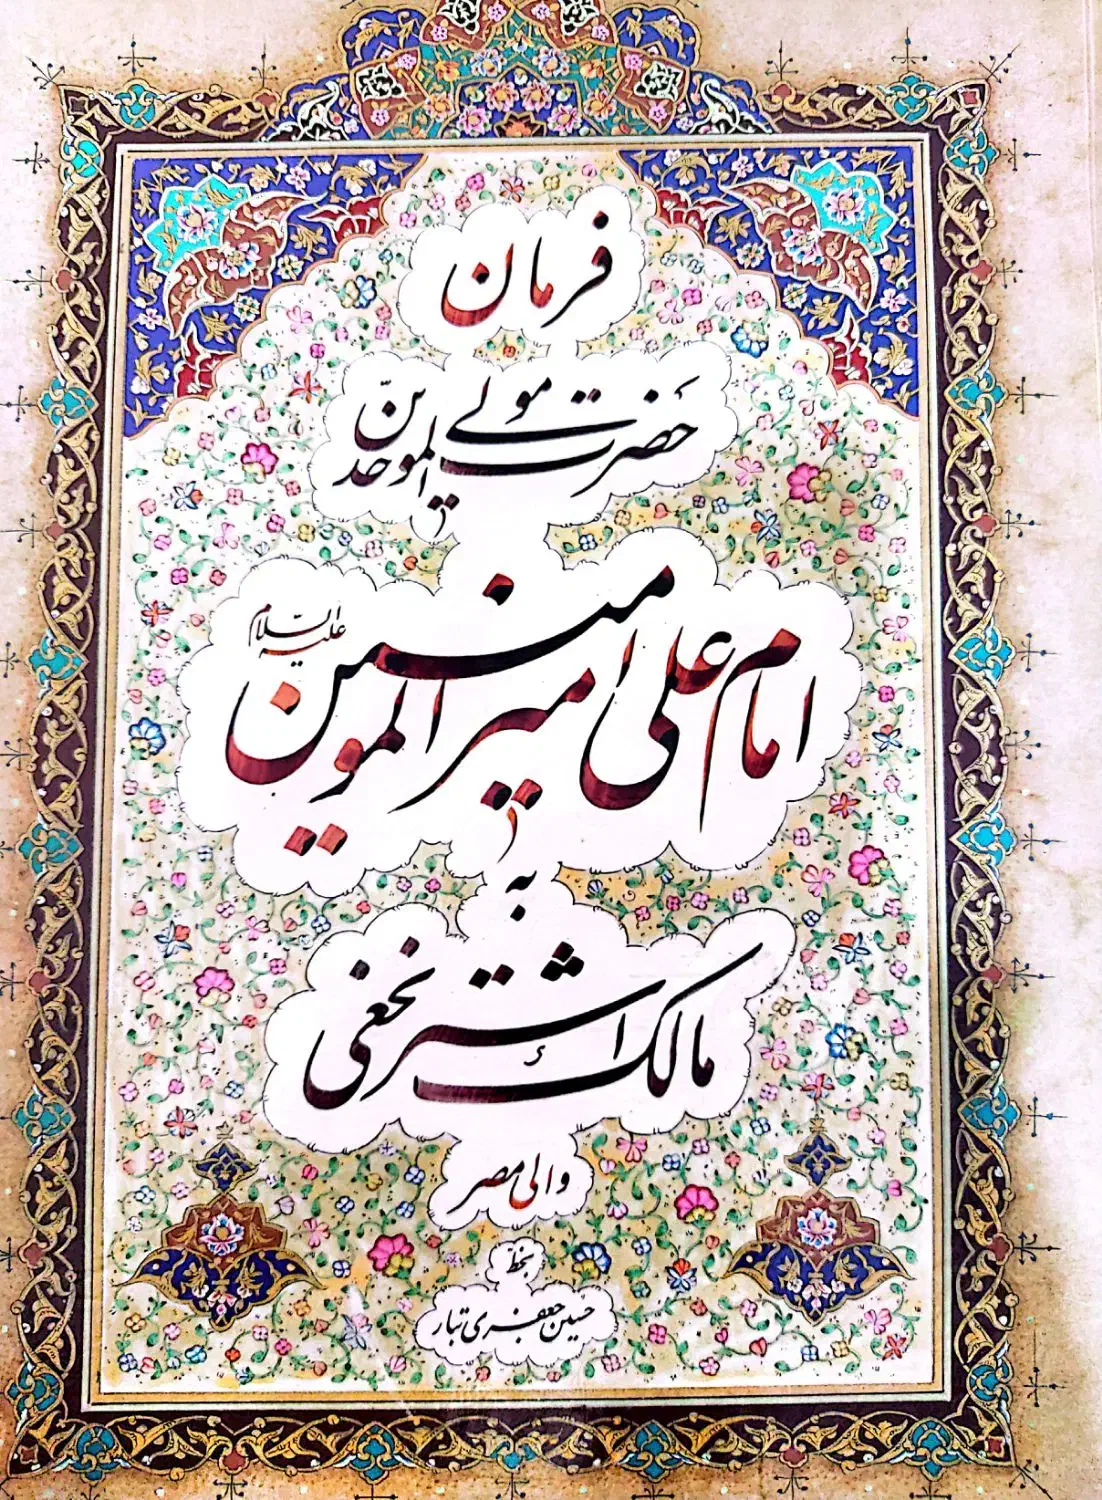 فرمان
حضرت مولی الموحدین
امام علی امیرالمومنین علیه السلام
به
مالک اشتر نخعی
والی مصر
بخط
حسین جعفری تبار